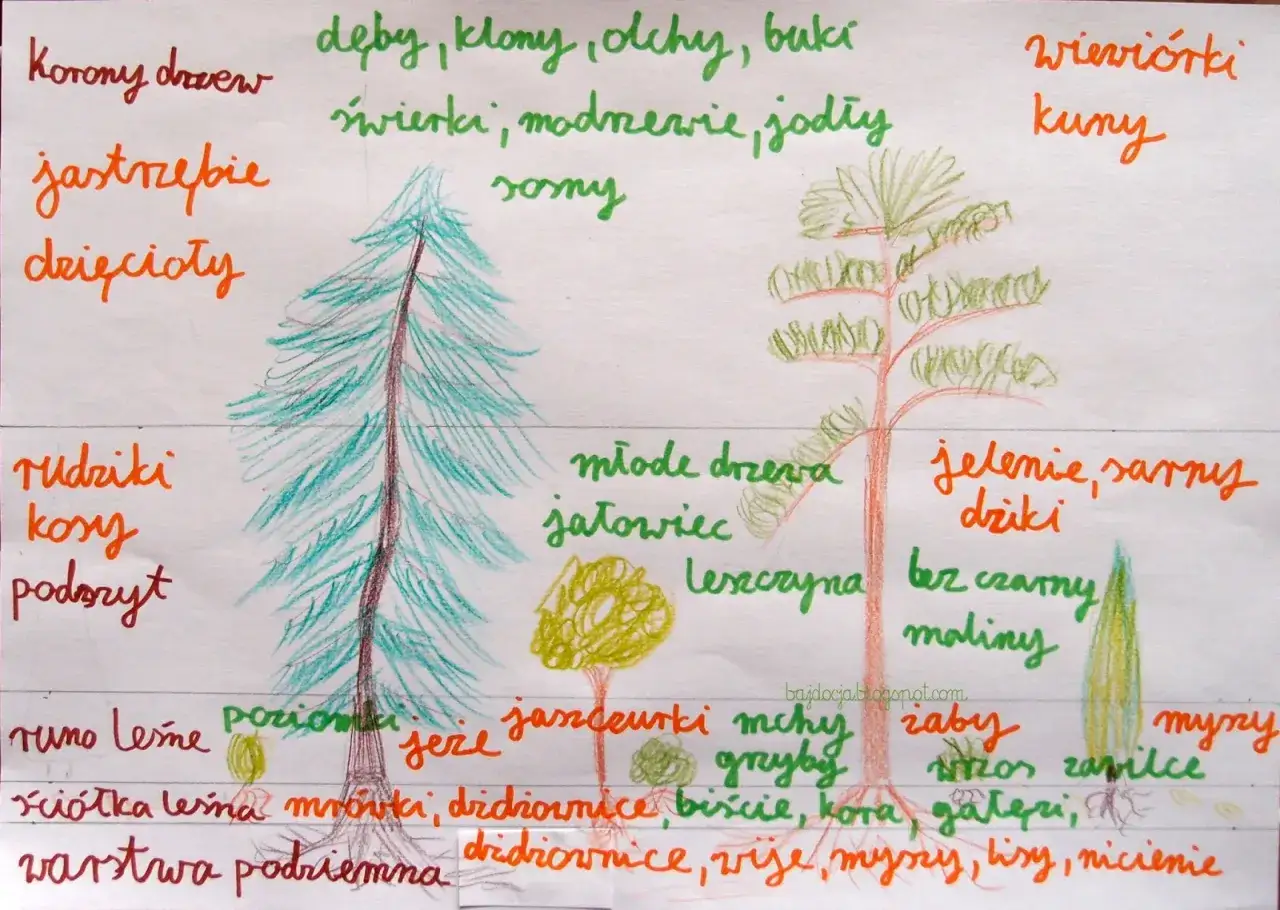 Korony drzew
dęby, klony, olchy, buki
świerki, modrzewie, jodły
sosny
wiewiórki
kuny
jastrzębie
dzięcioły
rudziki
kosy
podszyt
młode drzewa
jałowiec
leszczyna
jelenie, sarny
dziki
bez czarny
maliny
bajdocja.blogspot.com
runo leśne poziomki jeże jaszczurki mchy żaby myszy
grzyby wrzos zawilce
ściółka leśna mrówki, dżdżownice, liście, kora, gałęzi,
warstwa podziemna dżdżownice, wije, myszy, lisy, nicienie